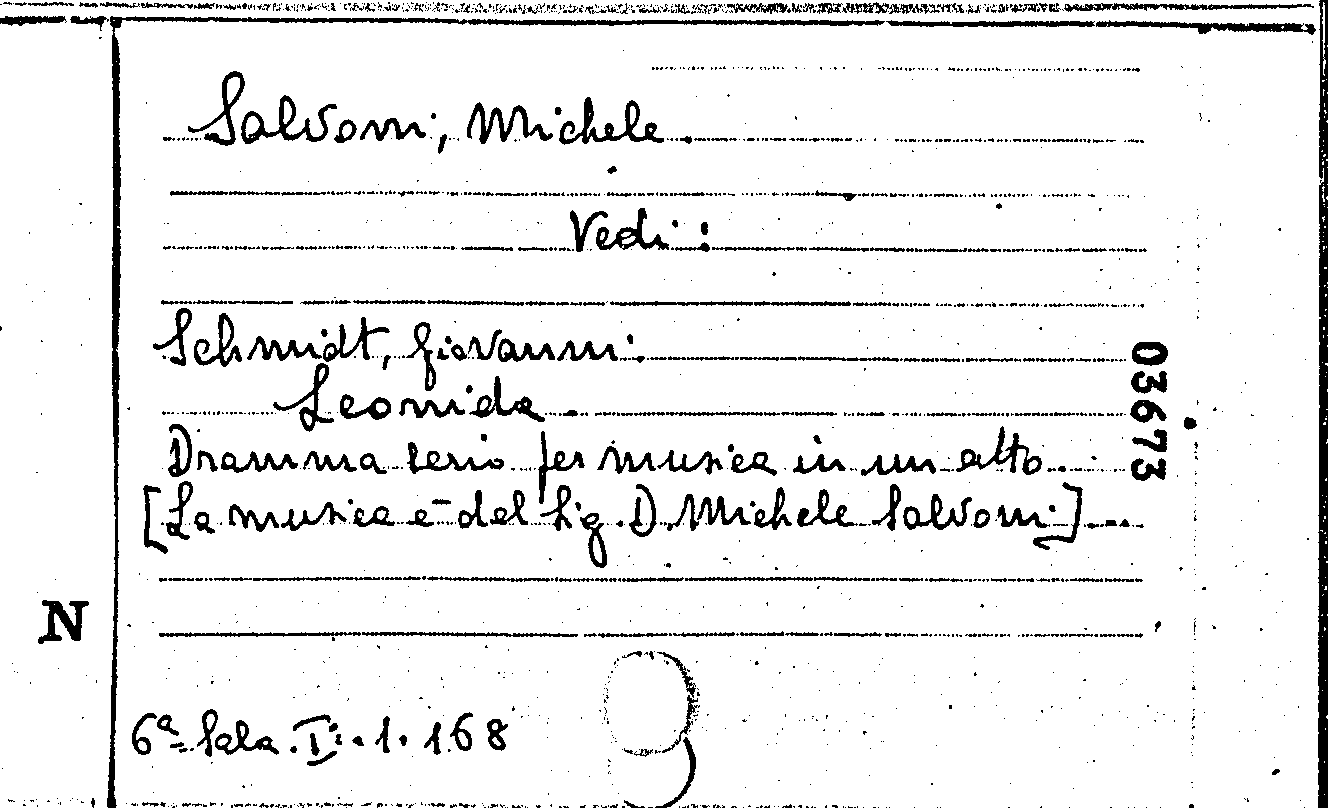 Salvoni, Michele.
Vedi:
Schmidt, Giovanni.
Leonida.
Dramma serio per musica in un atto.
[La musica è del Sig. D. Michele Salvoni]...
03673
N
6ª Sala. I. 1. 168